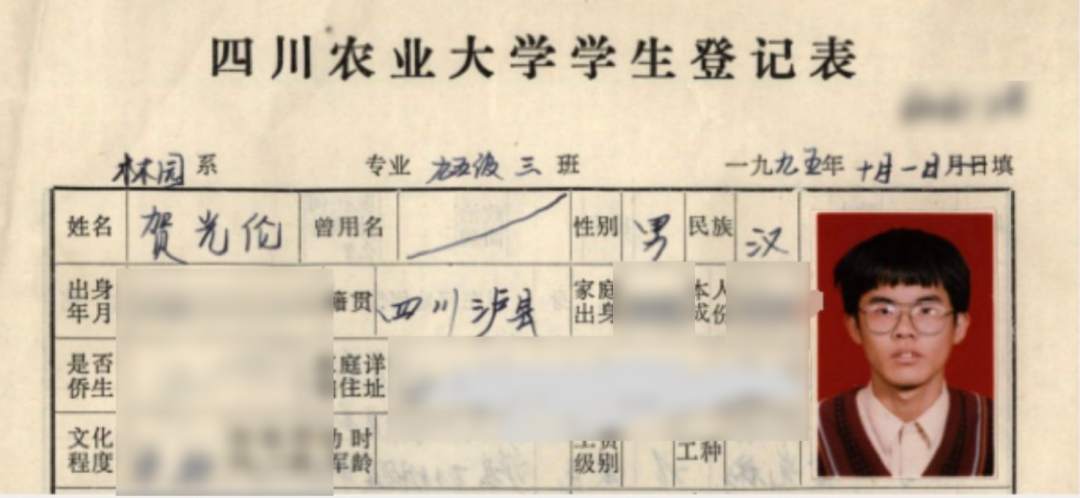 四川农业大学学生登记表
林园系 专业 九五级三班 一九九五年十月一日月日填
姓名 贺光伦 曾用名 性别 男 民族 汉
出身年月 籍贯 四川泸县 家庭出身 本人成份
是否侨生 家庭详 住址
文化程度 时 军龄 级别 工种